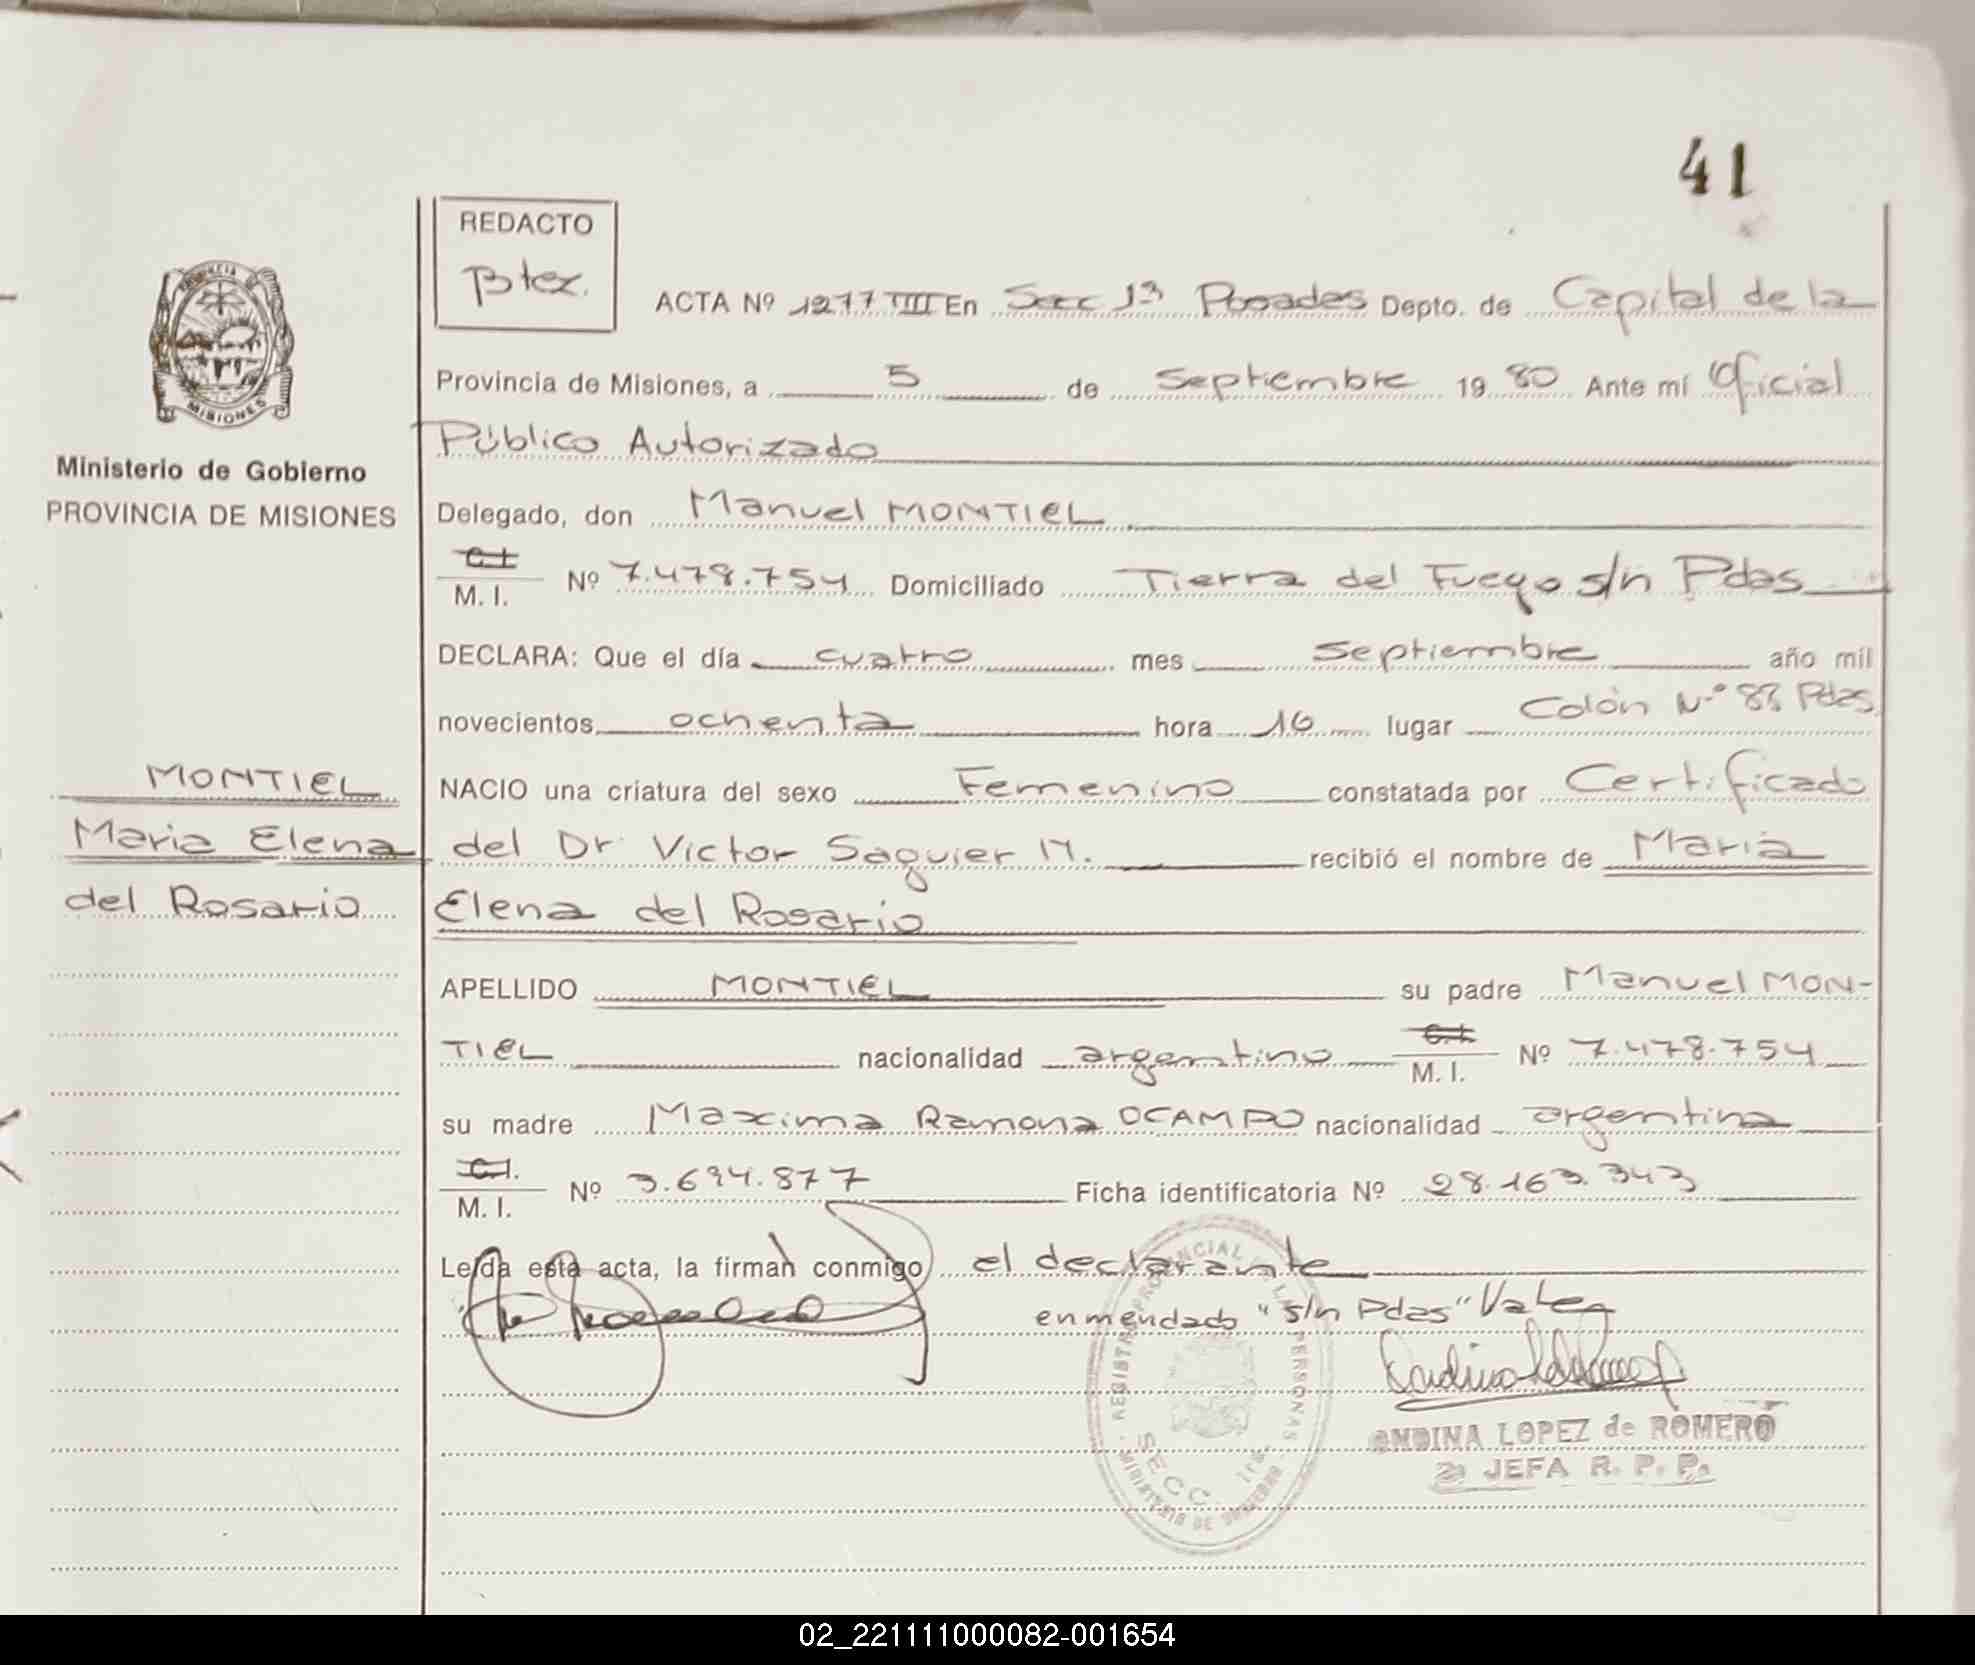 41
REDACTO
Btex.
ACTA Nº 1277 TIII En Secc 1ª Posadas Depto. de Capital de la
Provincia de Misiones, a 5 de Septiembre 1980 Ante mí Oficial
Público Autorizado
Ministerio de Gobierno
PROVINCIA DE MISIONES
Delegado, don Manuel MONTIEL
C.I.
M. I. Nº 7.478.754 Domiciliado Tierra del Fuego s/n Pdas
DECLARA: Que el día cuatro mes Septiembre año mil
novecientos ochenta hora 16 lugar Colón Nº 88 Pdas.
MONTIEL
Maria Elena
del Rosario
NACIO una criatura del sexo Femenino constatada por Certificado
del Dr Victor Saguier M. recibió el nombre de Maria
Elena del Rosario
APELLIDO MONTIEL su padre Manuel MON-
TIEL nacionalidad argentino C.I. M. I. Nº 7.478.754
su madre Maxima Ramona OCAMPO nacionalidad argentina
C.I.
M. I. Nº 3.694.877 Ficha identificatoria Nº 28.163.343
Leída esta acta, la firman conmigo el declarante
enmendado "s/n Pdas" Vale
LOPEZ de ROMERO
JEFA R. P. P.
REGISTRO PROVINCIAL DE LAS PERSONAS
SECC. 1ra.
MINISTERIO DE GOBIERNO
PROVINCIA DE
MISIONES
02_221111000082-001654